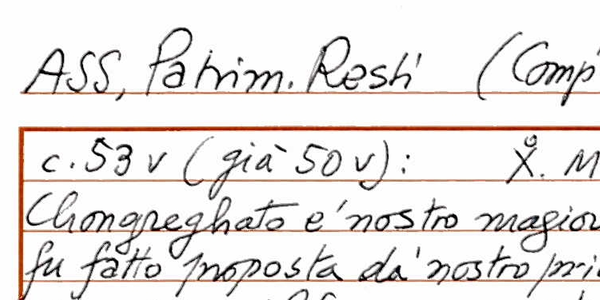 ASS, Patrim. Resti (Comp
c. 53 v (già 50 v): X. M
Chongreghato e' nostro magior
fu fatto proposta da' nostro pri